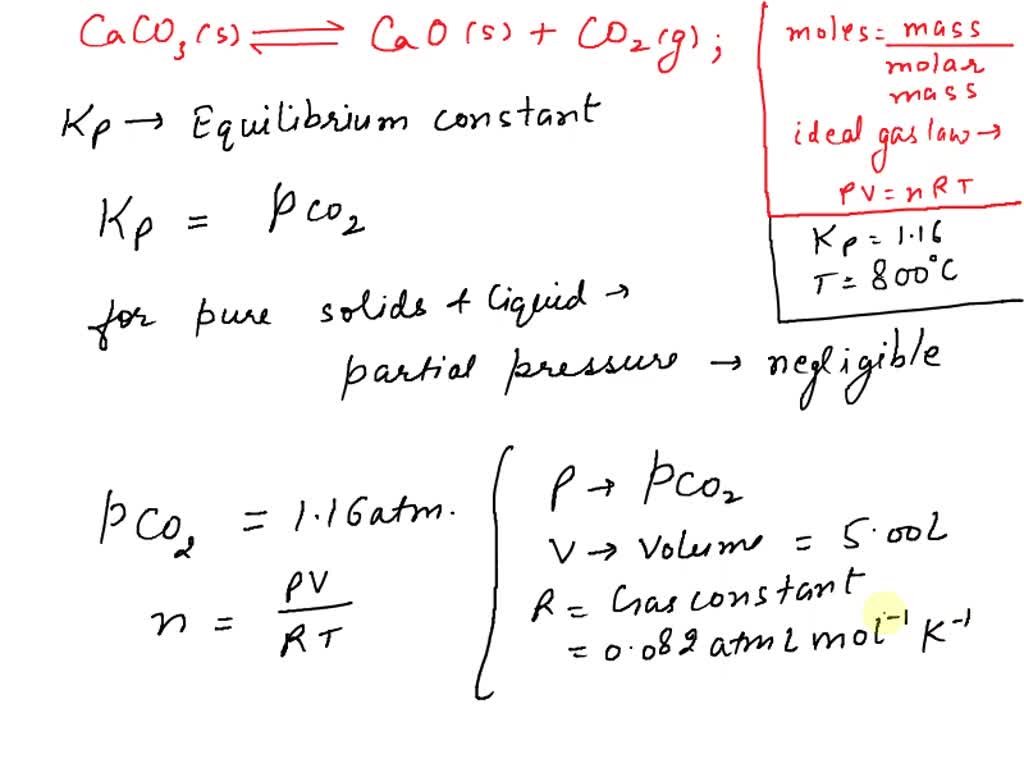 CaCO₃(s) ⇌ CaO(s) + CO₂(g);
moles = mass
molar
mass
ideal gas law →
PV = nRT
Kp = 1.16
T = 800°C
Kp → Equilibrium constant
Kp = pCO₂
for pure solids + liquid →
partial pressure → negligible
pCO₂ = 1.16 atm.
n = PV
RT
P → pCO₂
V → volume = 5.00L
R = Gas constant
= 0.082 atm L mol⁻¹ K⁻¹